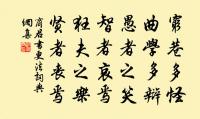 窮巷多怪
曲學多辯
愚者之笑
智者哀焉
狂夫之樂
賢者喪焉
商君書更法詞典
網集